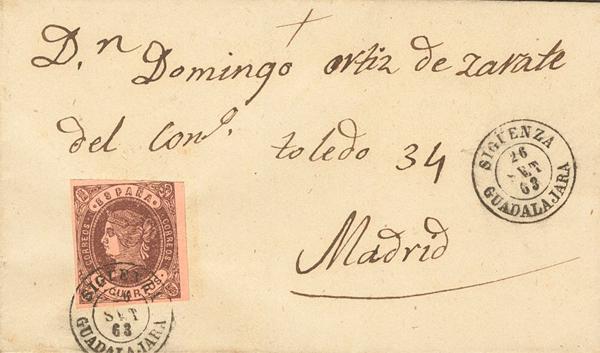 D.n Domingo ortiz de zarate
del Com.o toledo 34
Madrid
SIGÜENZA
26
SET
63
GUADALAJARA
ESPAÑA
CORREOS
CORREOS
CUARTOS
SIGÜE
SET
63
GUADALAJARA